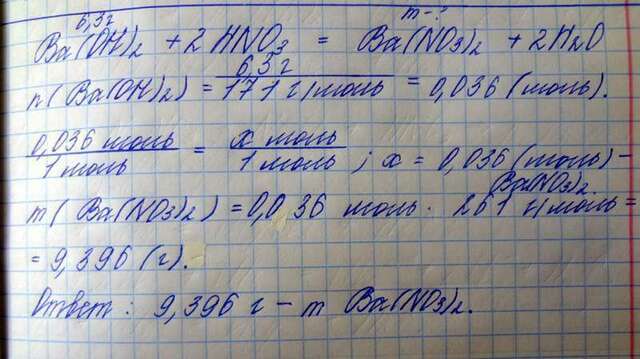 6,3 г m-?
Ba(OH)2 + 2 HNO3 = Ba(NO3)2 + 2H2O
n(Ba(OH)2) = 6,3 г / 171 г/моль = 0,036 (моль).
0,036 моль / 1 моль = x моль / 1 моль ; x = 0,036 (моль) –
Ba(NO3)2.
m(Ba(NO3)2) = 0,036 моль · 261 г/моль =
= 9,396 (г).
Ответ: 9,396 г – m Ba(NO3)2.